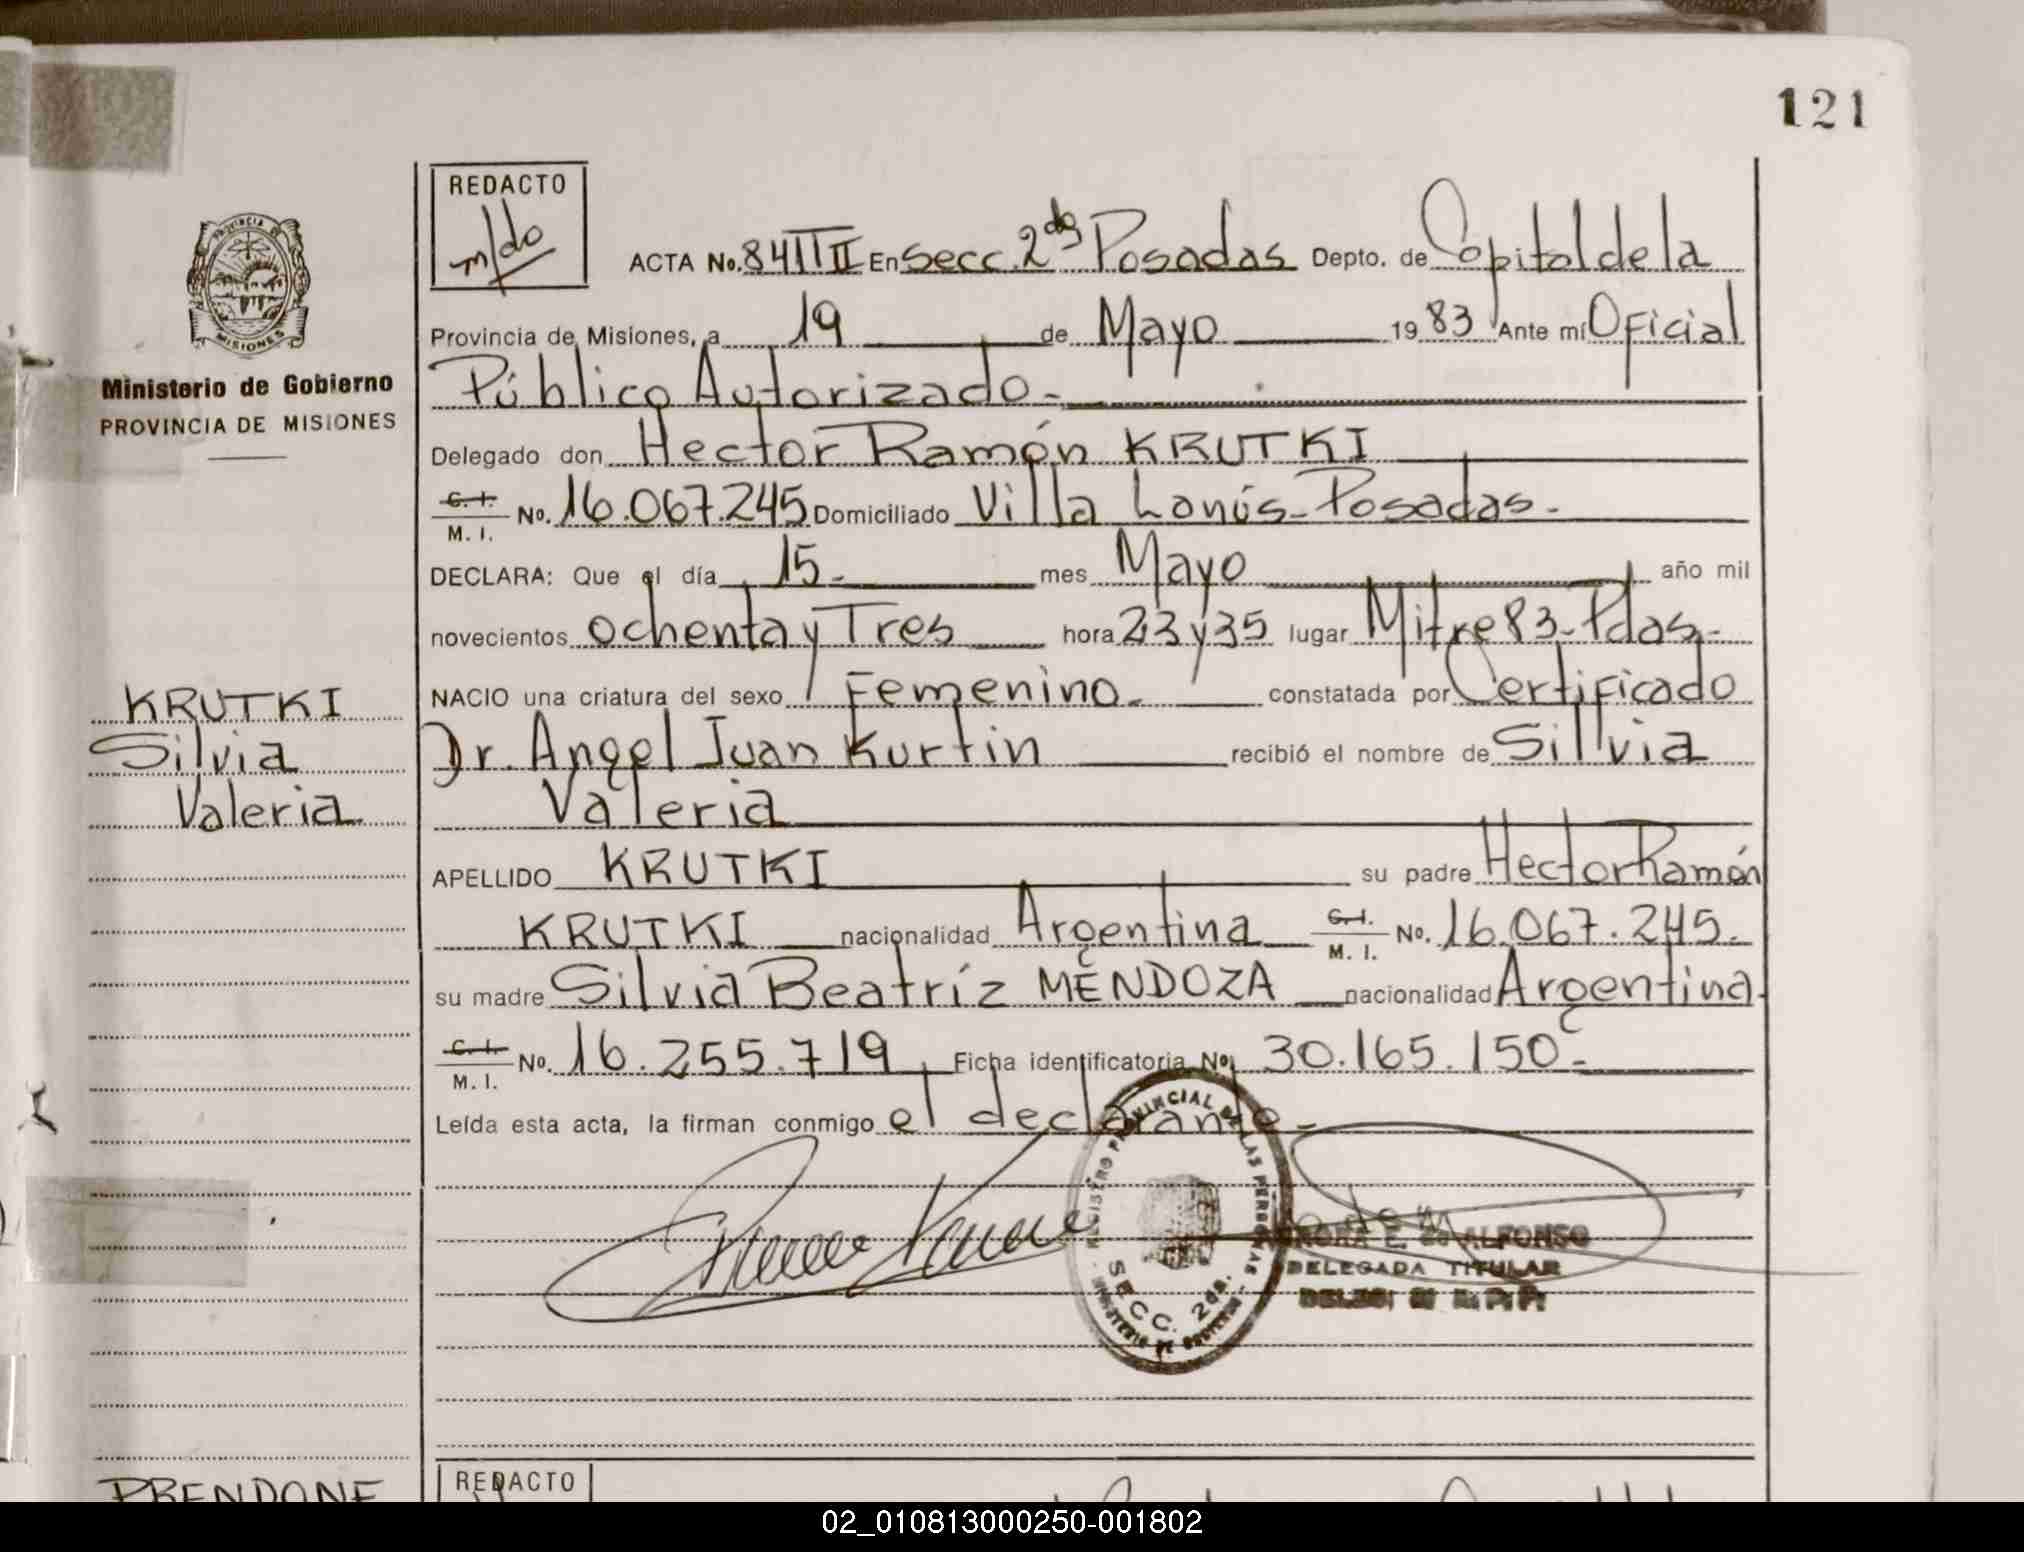 121
REDACTO
m/do
ACTA No. 84 T II En Secc. 2da Posadas Depto. de Capital de la
Provincia de Misiones, a 19 de Mayo 1983 Ante mí Oficial
Público Autorizado.-
Delegado don Hector Ramón KRUTKI
C. I. M. I. No. 16.067.245 Domiciliado Villa Lanús - Posadas.-
DECLARA: Que el día 15.- mes Mayo año mil
novecientos ochenta y Tres hora 23 y 35 lugar Mitre 83 - Pdas.-
NACIO una criatura del sexo Femenino.- constatada por Certificado
Dr. Angel Juan Kurtin recibió el nombre de Sillvia
Valeria
APELLIDO KRUTKI su padre Hector Ramón
KRUTKI nacionalidad Argentina C. I. M. I. No. 16.067.245.-
su madre Silvia Beatríz MÉNDOZA nacionalidad Argentina.
C. I. M. I. No. 16.255.719 Ficha identificatoria No. 30.165.150.-
Leída esta acta, la firman conmigo el declarante.-
PROVINCIA DE
MISIONES
Ministerio de Gobierno
PROVINCIA DE MISIONES
KRUTKI
Silvia
Valeria
REGISTRO PROVINCIAL DE LAS PERSONAS
SECC. 2da.
MINISTERIO DE GOBIERNO
E. de ALFONSO
DELEGADA TITULAR
PRENDONE
REDACTO
02_010813000250-001802